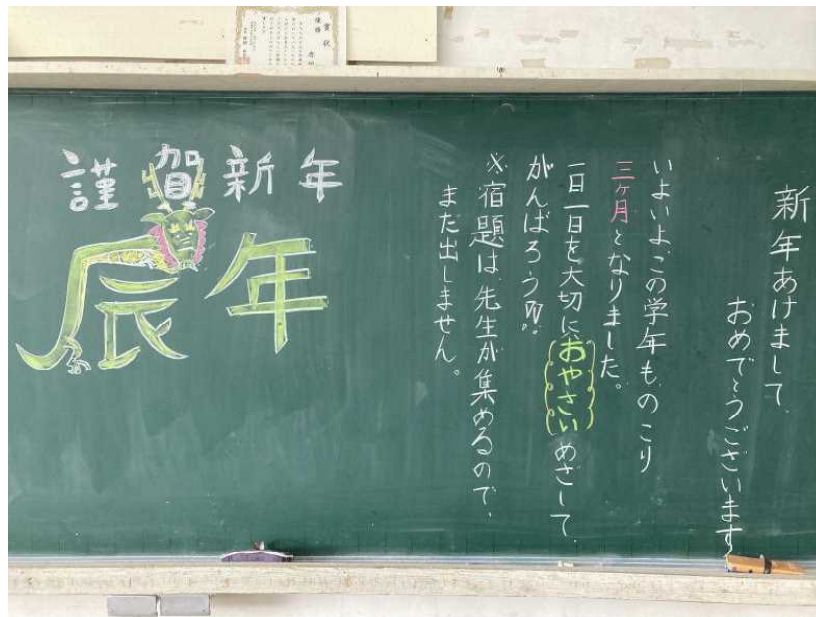 賞状
優勝
謹賀新年
辰年
新年あけまして
おめでとうございます
いよいよこの学年ものこり
三ヶ月となりました。
一日一日を大切に(おやさい)めざして
がんばろう!!
※宿題は先生が集めるので、
まだ出しません。